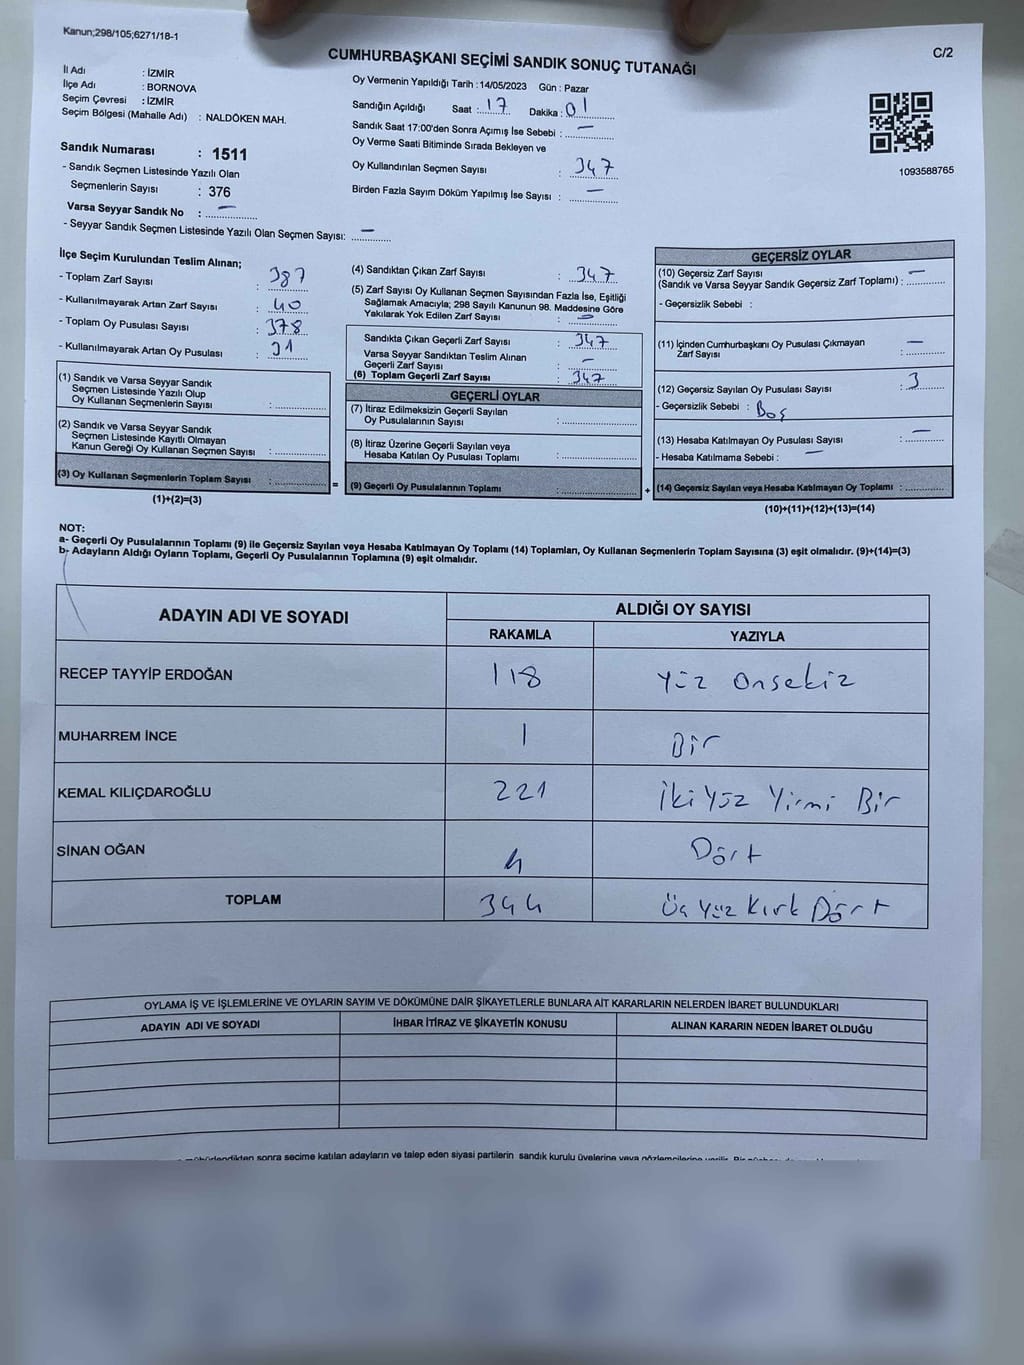 Kanun;298/105;6271/18-1
C/2
CUMHURBAŞKANI SEÇİMİ SANDIK SONUÇ TUTANAĞI
İl Adı : İZMİR
İlçe Adı : BORNOVA
Seçim Çevresi : İZMİR
Seçim Bölgesi (Mahalle Adı) : NALDÖKEN MAH.
Sandık Numarası : 1511
- Sandık Seçmen Listesinde Yazılı Olan
Seçmenlerin Sayısı : 376
Varsa Seyyar Sandık No : –
- Seyyar Sandık Seçmen Listesinde Yazılı Olan Seçmen Sayısı: –
Oy Vermenin Yapıldığı Tarih : 14/05/2023 Gün : Pazar
Sandığın Açıldığı Saat : 17 Dakika : 01
Sandık Saat 17:00'den Sonra Açımış İse Sebebi : –
Oy Verme Saati Bitiminde Sırada Bekleyen ve
Oy Kullandırılan Seçmen Sayısı : 347
Birden Fazla Sayım Döküm Yapılmış İse Sayısı : –
1093588765
İlçe Seçim Kurulundan Teslim Alınan;
- Toplam Zarf Sayısı : 387
- Kullanılmayarak Artan Zarf Sayısı : 40
- Toplam Oy Pusulası Sayısı : 378
- Kullanılmayarak Artan Oy Pusulası : 31
(1) Sandık ve Varsa Seyyar Sandık
Seçmen Listesinde Yazılı Olup
Oy Kullanan Seçmenlerin Sayısı :
(2) Sandık ve Varsa Seyyar Sandık
Seçmen Listesinde Kayıtlı Olmayan
Kanun Gereği Oy Kullanan Seçmen Sayısı :
(3) Oy Kullanan Seçmenlerin Toplam Sayısı :
(1)+(2)=(3)
=
(4) Sandıktan Çıkan Zarf Sayısı : 347
(5) Zarf Sayısı Oy Kullanan Seçmen Sayısından Fazla İse, Eşitliği
Sağlamak Amacıyla; 298 Sayılı Kanunun 98. Maddesine Göre
Yakılarak Yok Edilen Zarf Sayısı :
Sandıkta Çıkan Geçerli Zarf Sayısı : 347
Varsa Seyyar Sandıktan Teslim Alınan
Geçerli Zarf Sayısı : –
(6) Toplam Geçerli Zarf Sayısı : 347
GEÇERLİ OYLAR
(7) İtiraz Edilmeksizin Geçerli Sayılan
Oy Pusulalarının Sayısı :
(8) İtiraz Üzerine Geçerli Sayılan veya
Hesaba Katılan Oy Pusulası Toplamı :
(9) Geçerli Oy Pusulalarının Toplamı :
+
GEÇERSİZ OYLAR
(10) Geçersiz Zarf Sayısı
(Sandık ve Varsa Seyyar Sandık Geçersiz Zarf Toplamı) : –
- Geçersizlik Sebebi :
(11) İçinden Cumhurbaşkanı Oy Pusulası Çıkmayan
Zarf Sayısı : –
(12) Geçersiz Sayılan Oy Pusulası Sayısı : 3
- Geçersizlik Sebebi : Boş
(13) Hesaba Katılmayan Oy Pusulası Sayısı : –
- Hesaba Katılmama Sebebi : –
(14) Geçersiz Sayılan veya Hesaba Katılmayan Oy Toplamı :
(10)+(11)+(12)+(13)=(14)
NOT:
a- Geçerli Oy Pusulalarının Toplamı (9) ile Geçersiz Sayılan veya Hesaba Katılmayan Oy Toplamı (14) Toplamları, Oy Kullanan Seçmenlerin Toplam Sayısına (3) eşit olmalıdır. (9)+(14)=(3)
b- Adayların Aldığı Oyların Toplamı, Geçerli Oy Pusulalarının Toplamına (9) eşit olmalıdır.
ADAYIN ADI VE SOYADI ALDIĞI OY SAYISI
RAKAMLA YAZIYLA
RECEP TAYYİP ERDOĞAN 118 Yüz Onsekiz
MUHARREM İNCE 1 Bir
KEMAL KILIÇDAROĞLU 221 İki Yüz Yirmi Bir
SİNAN OĞAN 4 Dört
TOPLAM 344 Üç Yüz Kırk Dört
OYLAMA İŞ VE İŞLEMLERİNE VE OYLARIN SAYIM VE DÖKÜMÜNE DAİR ŞİKAYETLERLE BUNLARA AİT KARARLARIN NELERDEN İBARET BULUNDUKLARI
ADAYIN ADI VE SOYADI İHBAR İTİRAZ VE ŞİKAYETİN KONUSU ALINAN KARARIN NEDEN İBARET OLDUĞU
sonra seçime katılan adayların ve talep eden siyasi partilerin sandık kurulu üyelerine veya